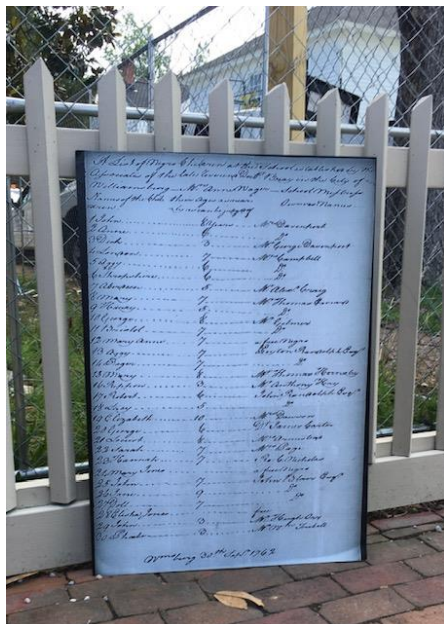 A List of Negro Children at the School established by the
Associates of the late Reverend Doctr. Bray in the City of
Williamsburg Mrs Ann Wager School Mistress
Names of the Owners Names
1 John 8 Years Mrs Davenport
2 Anne 6 Do
3 Dick 3 Mr George Davenport
4 7 Mrs Campbell
5 Aggy 6 Do
6 6 Do
7 5 Mr Alexr Craig
8 Mary 7 Mr Thomas
9 5 Do
10 George 8 Mr Gilmer
11 Bristol 7 Do
12 Mary Anne 7 a free Negro
13 Aggy Peyton Randolph Esqr
14 Roger Do
15 Mary 8 Mr Thomas Hornsby
16 3 Mr Anthony Hay
17 Robert 6 John Randolph Esqr
18 Lucy 5 Do
19 Elizabeth 10 Mrs
20 George 6 Dr James Carter
21 Locust 8 Mrs
22 Sarah 7 Mrs Page
23 Hannah 7 Ro. C. Nicholas
24 Mary Jones a free Negro
25 John 7 John Blair Esqr
26 Jane 9 Do
27 Doll 7 Do
28 Elisha Jones free
29 John 3 Mr Hugh Orr
30 Phoebe 3 Mr Wm Trebell
Wmsburg 30th Septr 1762